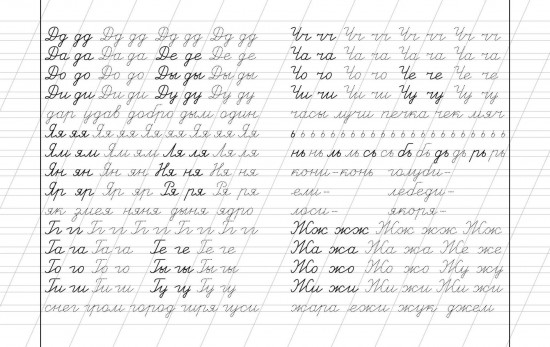 Дд дд Дд дд Дд дд Дд дд
Да да Да да Де де Де де
До до До до Ды ды Ды ды
Ди ди Ди ди Ду ду Ду ду
дар удав добро дым один
Яя яя Яя яя Яя яя Яя Яя
Ям ям Ям ям Ля ля Ля ля
Ян ян Ян ян Ня ня Ня ня
Яр яр Яр яр Ря ря Ря ря
як змея няня дыня ядро
Гг гг Гг гг Гг гг Гг гг
Га га Га га Ге ге Ге ге
Го го Го го Гы гы Гы гы
Ги ги Ги ги Гу гу Гу гу
снег гром город гиря гуси
Чч чч Чч чч Чч чч Чч чч
Ча ча Ча ча Ча ча Ча ча
Чо чо Чо чо Че че Че че
Чи чи Чи чи Чу чу Чу чу
часы лучи печка чек мяч
ь ь ь ь ь ь ь ь ь ь ь ь ь ь ь ь ь ь ь ь ь ь ь ь
нь нь ль ль сь сь бь бь дь дь рь рь
кони-конь голуби-
ели- лебеди-
лоси- якоря-
Жж жж Жж жж Жж жж
Жа жа Жа жа Же же
Жо жо Жо жо Жу жу
Жи жи Жи жи Жи жи
жара ежи жук джем